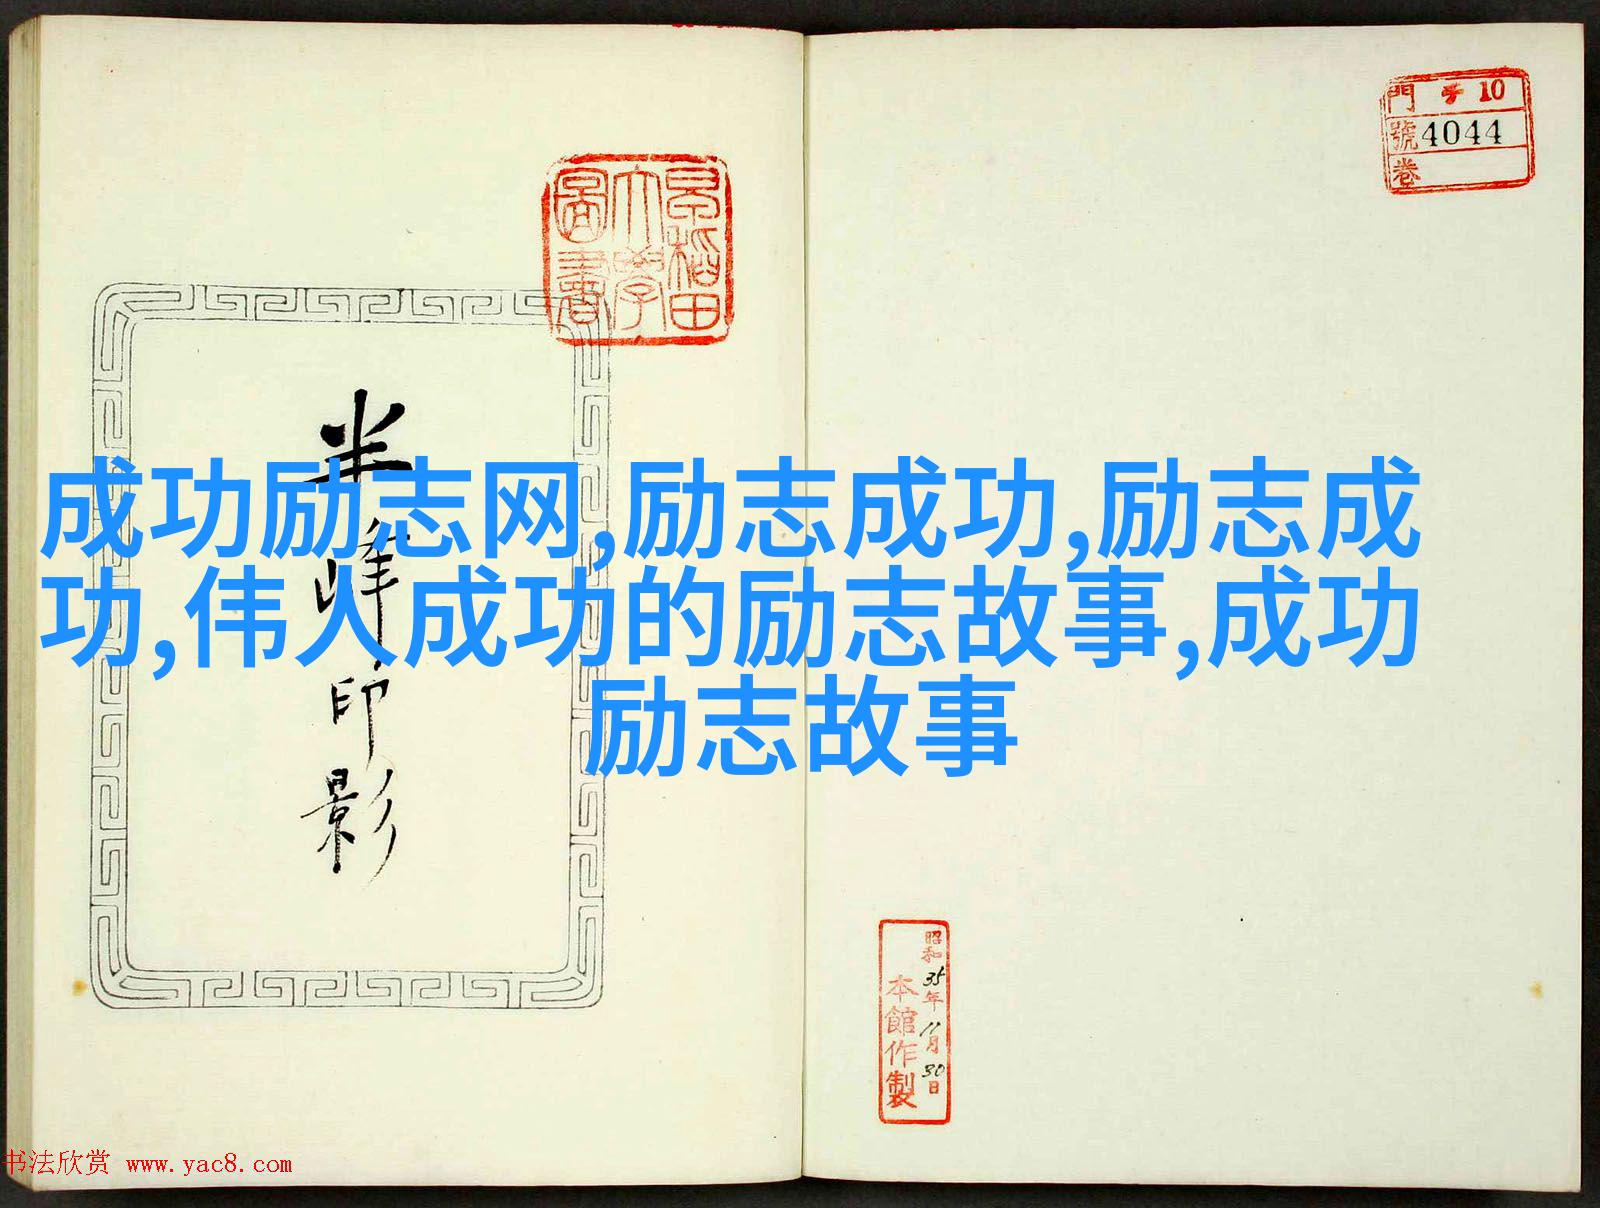 門 チ 10
號 4044
卷
早稲田
大學
圖書
半峰印影
成功励志网,励志成功,励志成
功,伟人成功的励志故事,成功
励志故事
昭和35年11月30日
本館作製
书法欣赏 www.yac8.com